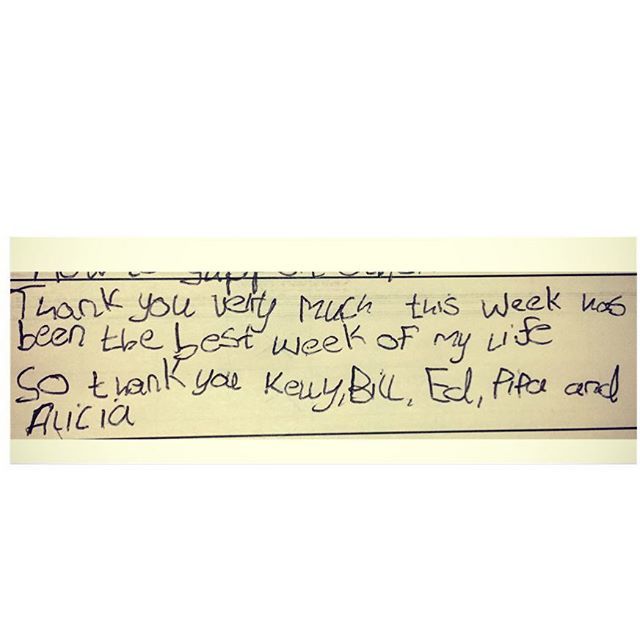 Thank you very much this week has
been the best week of my life
So thank you Kelly, Bill, Ed, Pipa and
Alicia